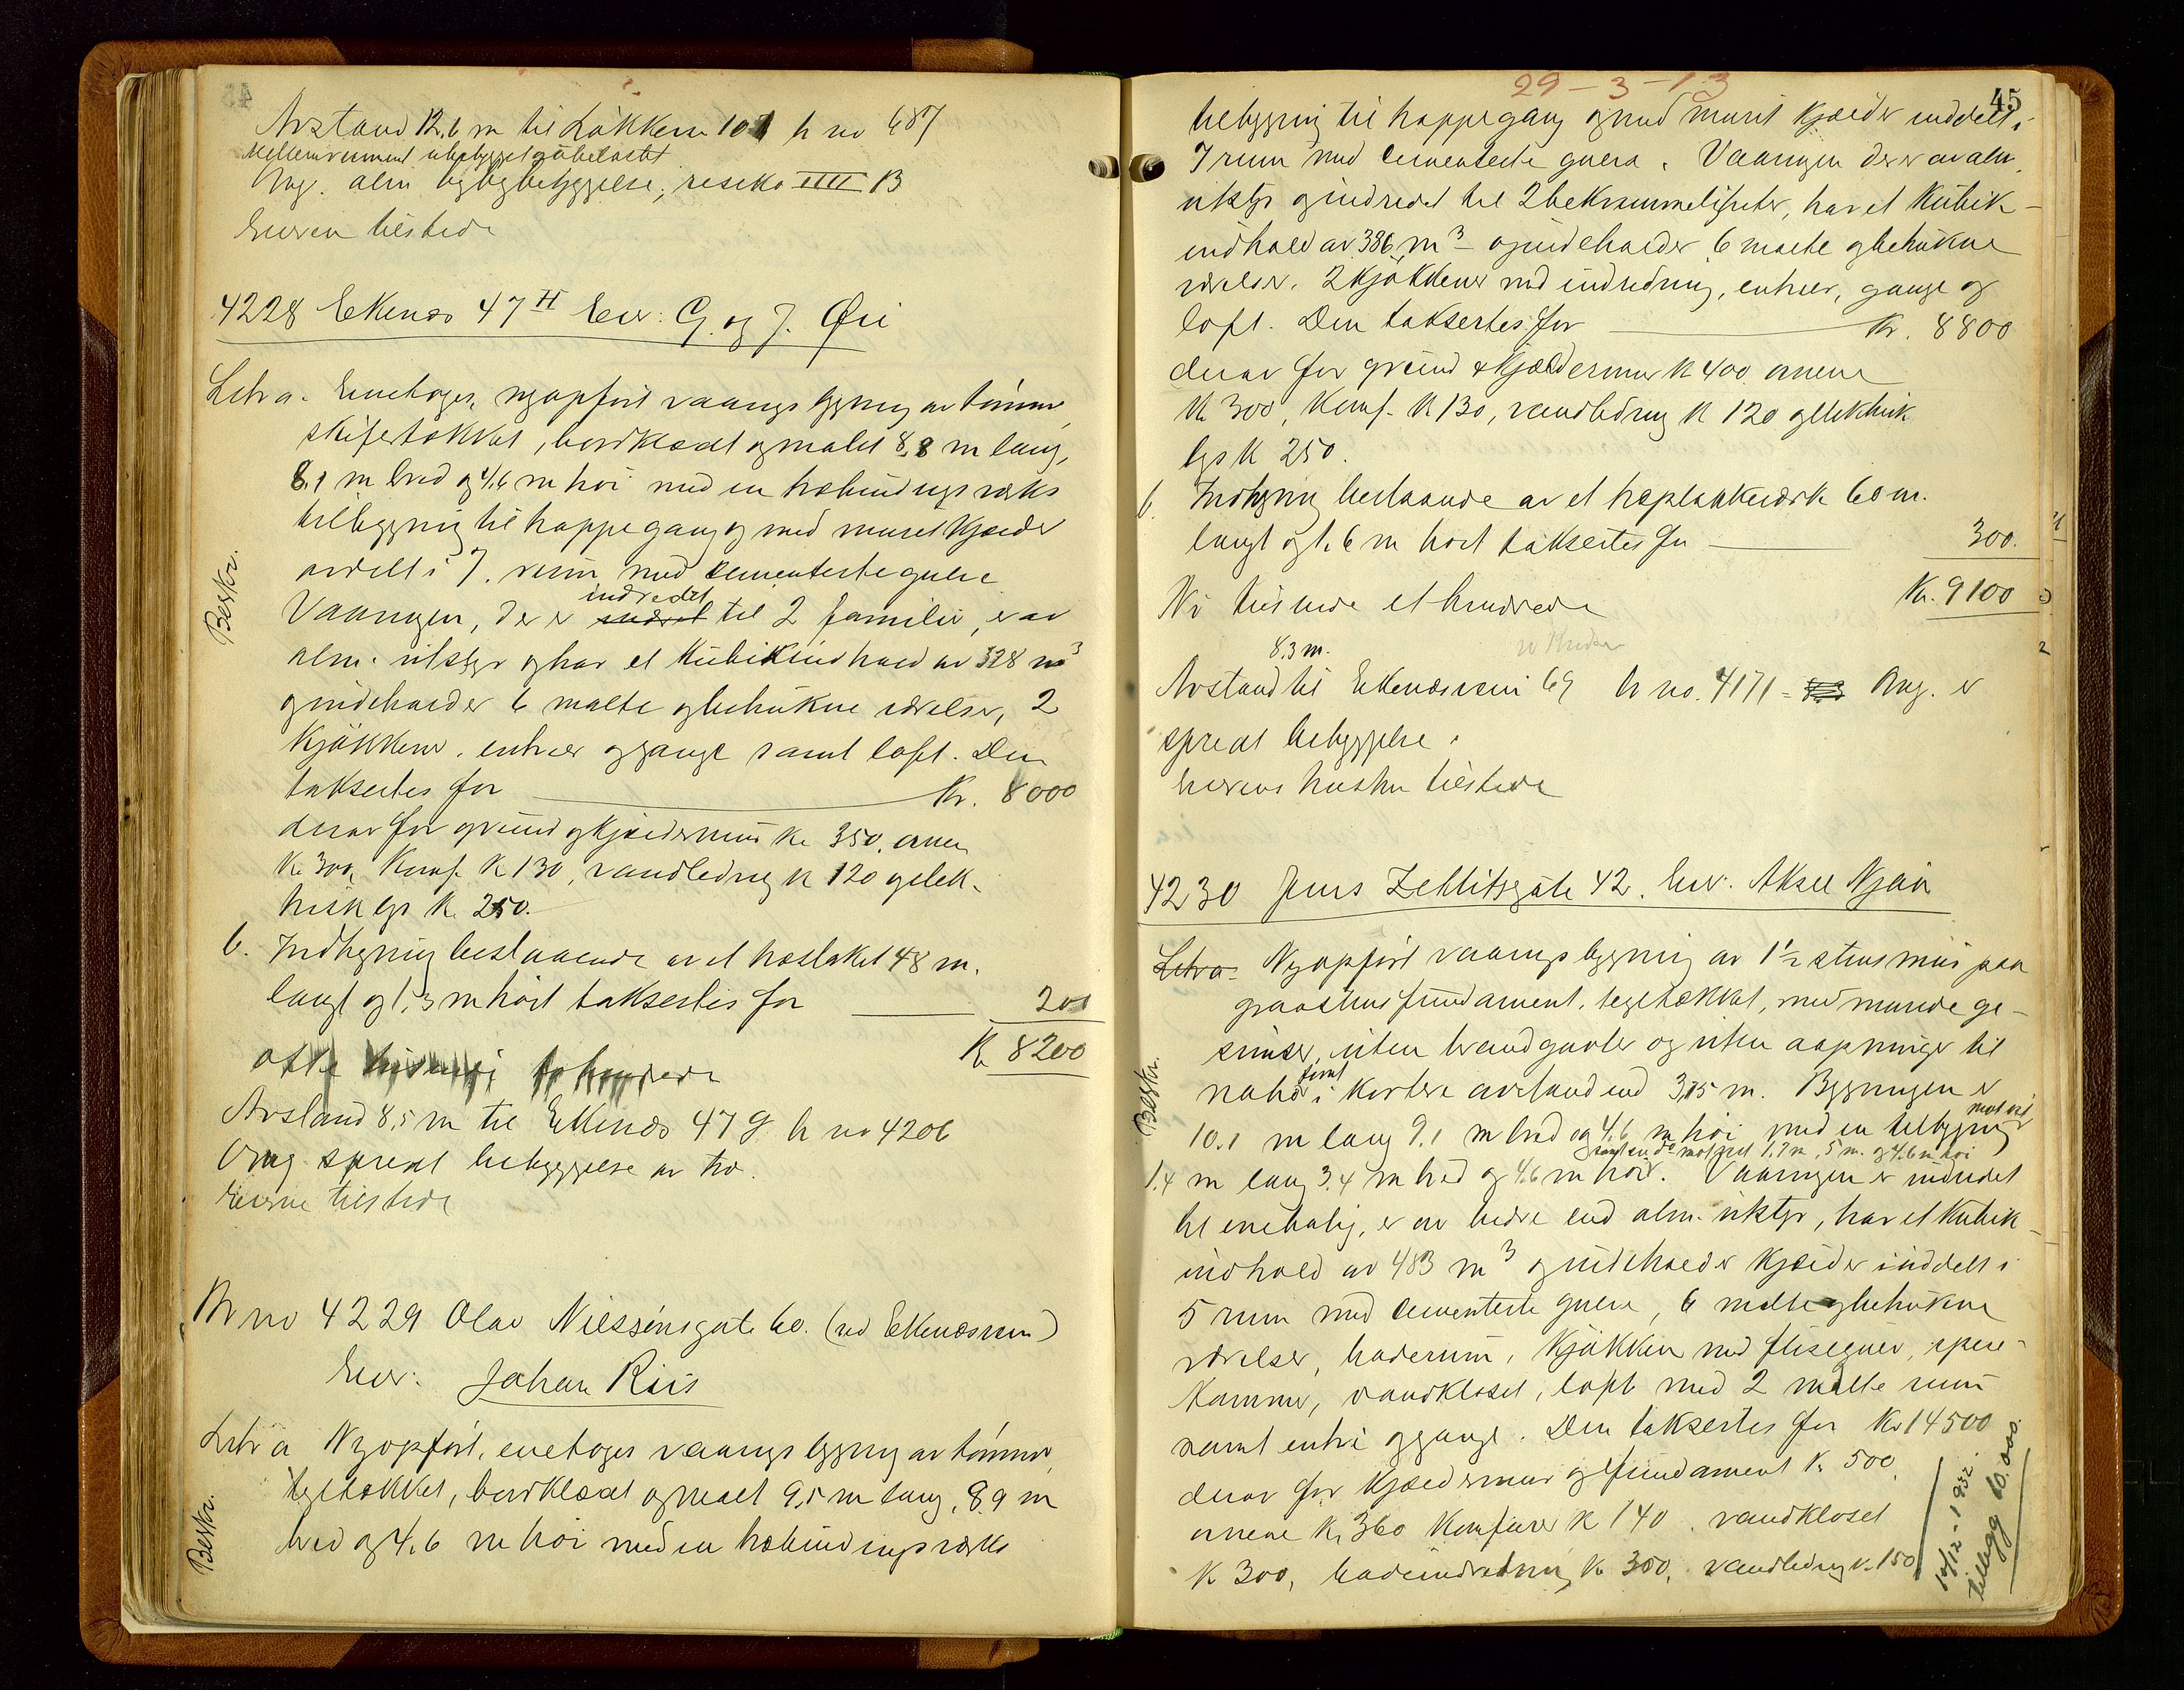 Avstand 12.6 m til Løkkeve 107 br no 687
Mellemrummet ubebygget og ubelastet
Omg. alm bybebyggelse, resiko IIII B
Eieren tilstede
4228 Ekenæs 47 H Eier: G. og J. Øie
Litr a. Enetages, nyopført vaaningsbygning av tømmer,
skifertækket, bordklædt og malet 8,8 m lang,
8,1 m bred og 4,6 m høi med en træbindingsverks
tilbygning til trappegang og med muret kjælder
avdelt i 7. rum med cementerte gulve
indredet
Vaaningen, der er til 2 familier, er av
alm. utstyr og har et kubikindhold av 328 m³
og indeholder 6 malte og betrukne værelser, 2
kjøkkener, entreer og gange samt loft. Den
taksertes for Kr. 8000
derav for grund og kjældermur kr 350, ovner
kr. 300, komf. kr 130, vandledning kr 120 og elek-
trisk lys kr. 250.
b. Indhegning bestaaende av et træstaket 48 m.
langt og 1,3 m høit taksertes for 200
Kr 8200
otte tusinde tohundrede
Avstand 8,5 m til Ekenæs 47 g br no 4206
Omg. spredt bebyggelse av træ.
Eierne tilstede
Br no 4229 Olav Nielsensgate 60. (ved Ekenæsveien)
Eier: Johan Riis
Litr a Nyopført, enetages vaaningsbygning av tømmer,
tegltækket, bordklædt og malt 9,5 m lang, 8,9 m
bred og 4,6 m høi med en træbindingsverks
Beskr.
Beskr.
29-3-13
45
tilbygning til trappegang og med muret kjælder inddelt i
7 rum med cementerte gulve. Vaaningen der er av alm.
utstyr og indredet til 2 bekvemmeligheter, har et kubik-
indhold av 386 m³ og indeholder 6 malte og betrukne
værelser, 2 kjøkkener med indredning, entreer, gange og
loft. Den taksertes for Kr. 8800
derav for grund & kjældermur kr 400 ovnene
kr 300, komf. kr 130, vandledning kr 120 og elektrisk
lys kr 250.
b. Indhegning bestaaende av et træplankeverk 60 m.
langt og 1.6 m høit taksertes for 300.
Ni tusinde et hundrede Kr. 9100
8,3 m.
Avstand til Ekenæsveien 69 br no. 4171 = Omg. er
spredt bebyggelse.
Eierens hustru tilstede
4230 Jens Zetlitzgate 42. Eier: Aksel Njaa
Litr a. Nyopført vaaningsbygning av 1½ stens mur paa
graastens fundament, tegltækket, med murede ge-
simser, uten brandgavler og uten aapninger til
nabo i kortere avstand end 3,15 m. Bygningen er
10.1 m lang 9.1 m bred og 4,6 m høi med en tilbygning
mot vest
samt en do mot øst 1.7 m, 5 m. og 4.6 m høi
1.4 m lang 3.4 m bred og 4.6 m høi. Vaaningen er indredet
til enebolig, er av bedre end alm. utstyr, har et kubik-
indhold av 483 m³ og indeholder kjælder inddelt i
5 rum med cementerte gulve, 6 malte og betrukne
værelser, baderum, kjøkken med flisegulv, spise-
kammer, vandkloset, loft med 2 malte rum
samt entre og gange. Den taksertes for Kr 14500
derav for kjældermur og fundament kr. 500,
ovnene kr. 360 komfurer kr 140, vandkloset
kr 300, badeindredning kr 300, vandledning kr. 150
Beskr.
10/12-1932.
tillegg 10.000.